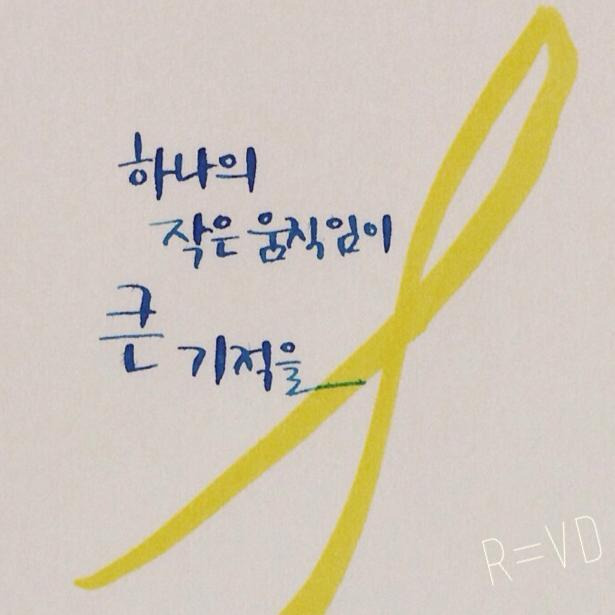 하나의
작은 움직임이
큰 기적을
R=VD